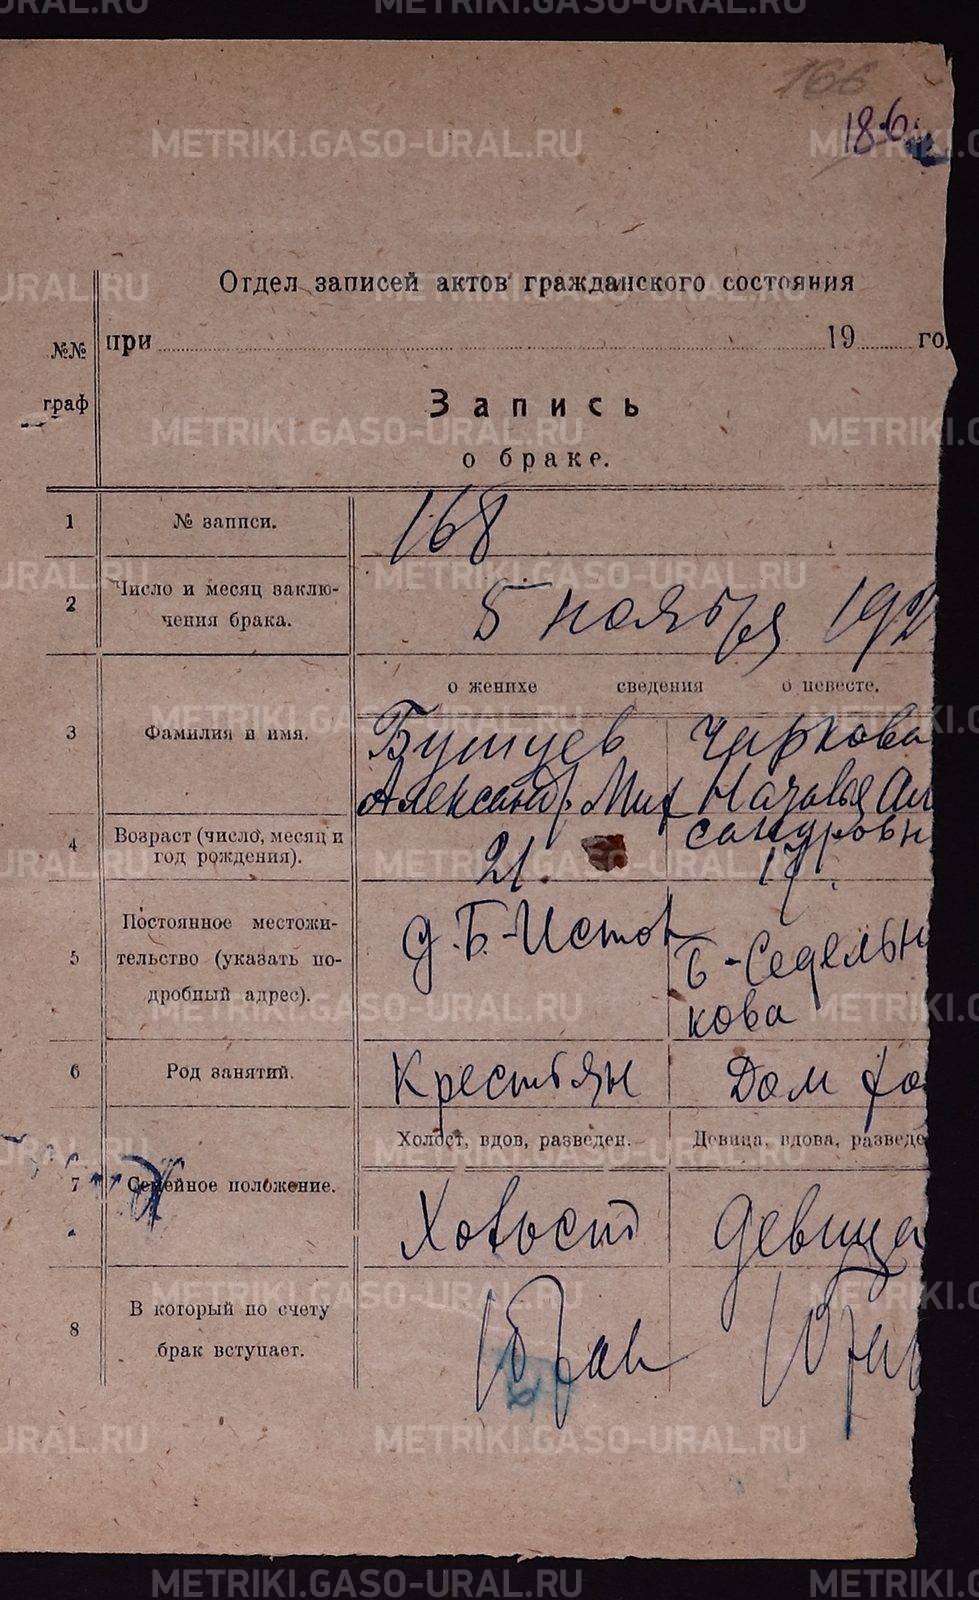 166
186
Отдел записей актов гражданского состояния
№№ при 19 го
граф
Запись
о браке.
1 № записи. 168
2 Число и месяц заключения брака. 5 ноября 192
о женихе сведения о невесте.
3 Фамилия и имя. Бутуев Чаркова
Александр. Мих
сандровн
4 Возраст (число, месяц и
год рождения). 21. 17.
5 Постоянное местожи-
тельство (указать по-
дробный адрес). д. Б.-Исток Б-Седельни
кова
6 Род занятий. Крестьян Дом хо
Холост, вдов, разведен. Девица, вдова, разведе
7 Семейное положение. Холост девица
8 В который по счету
брак вступает. 1 брак 1 брак
METRIKI.GASO-URAL.RU